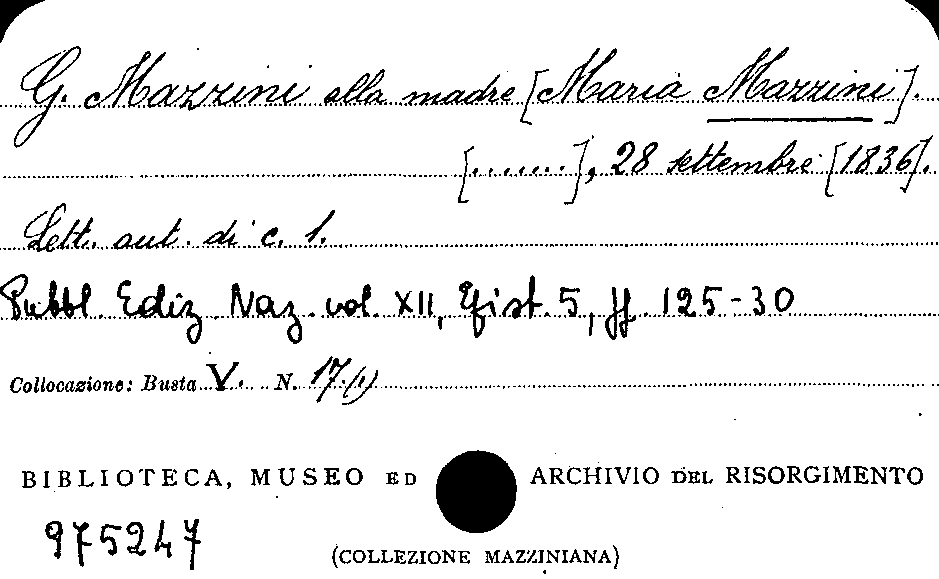 G. Mazzini alla madre [Maria Mazzini].
[.......], 28 settembre [1836].
Lett. aut. di c. 1.
Pubbl. Ediz. Naz. vol. XII, Epist. 5, ff. 125-30
Collocazione: Busta V. N. 17.(1)
BIBLIOTECA, MUSEO ED ARCHIVIO DEL RISORGIMENTO
975247
(COLLEZIONE MAZZINIANA)